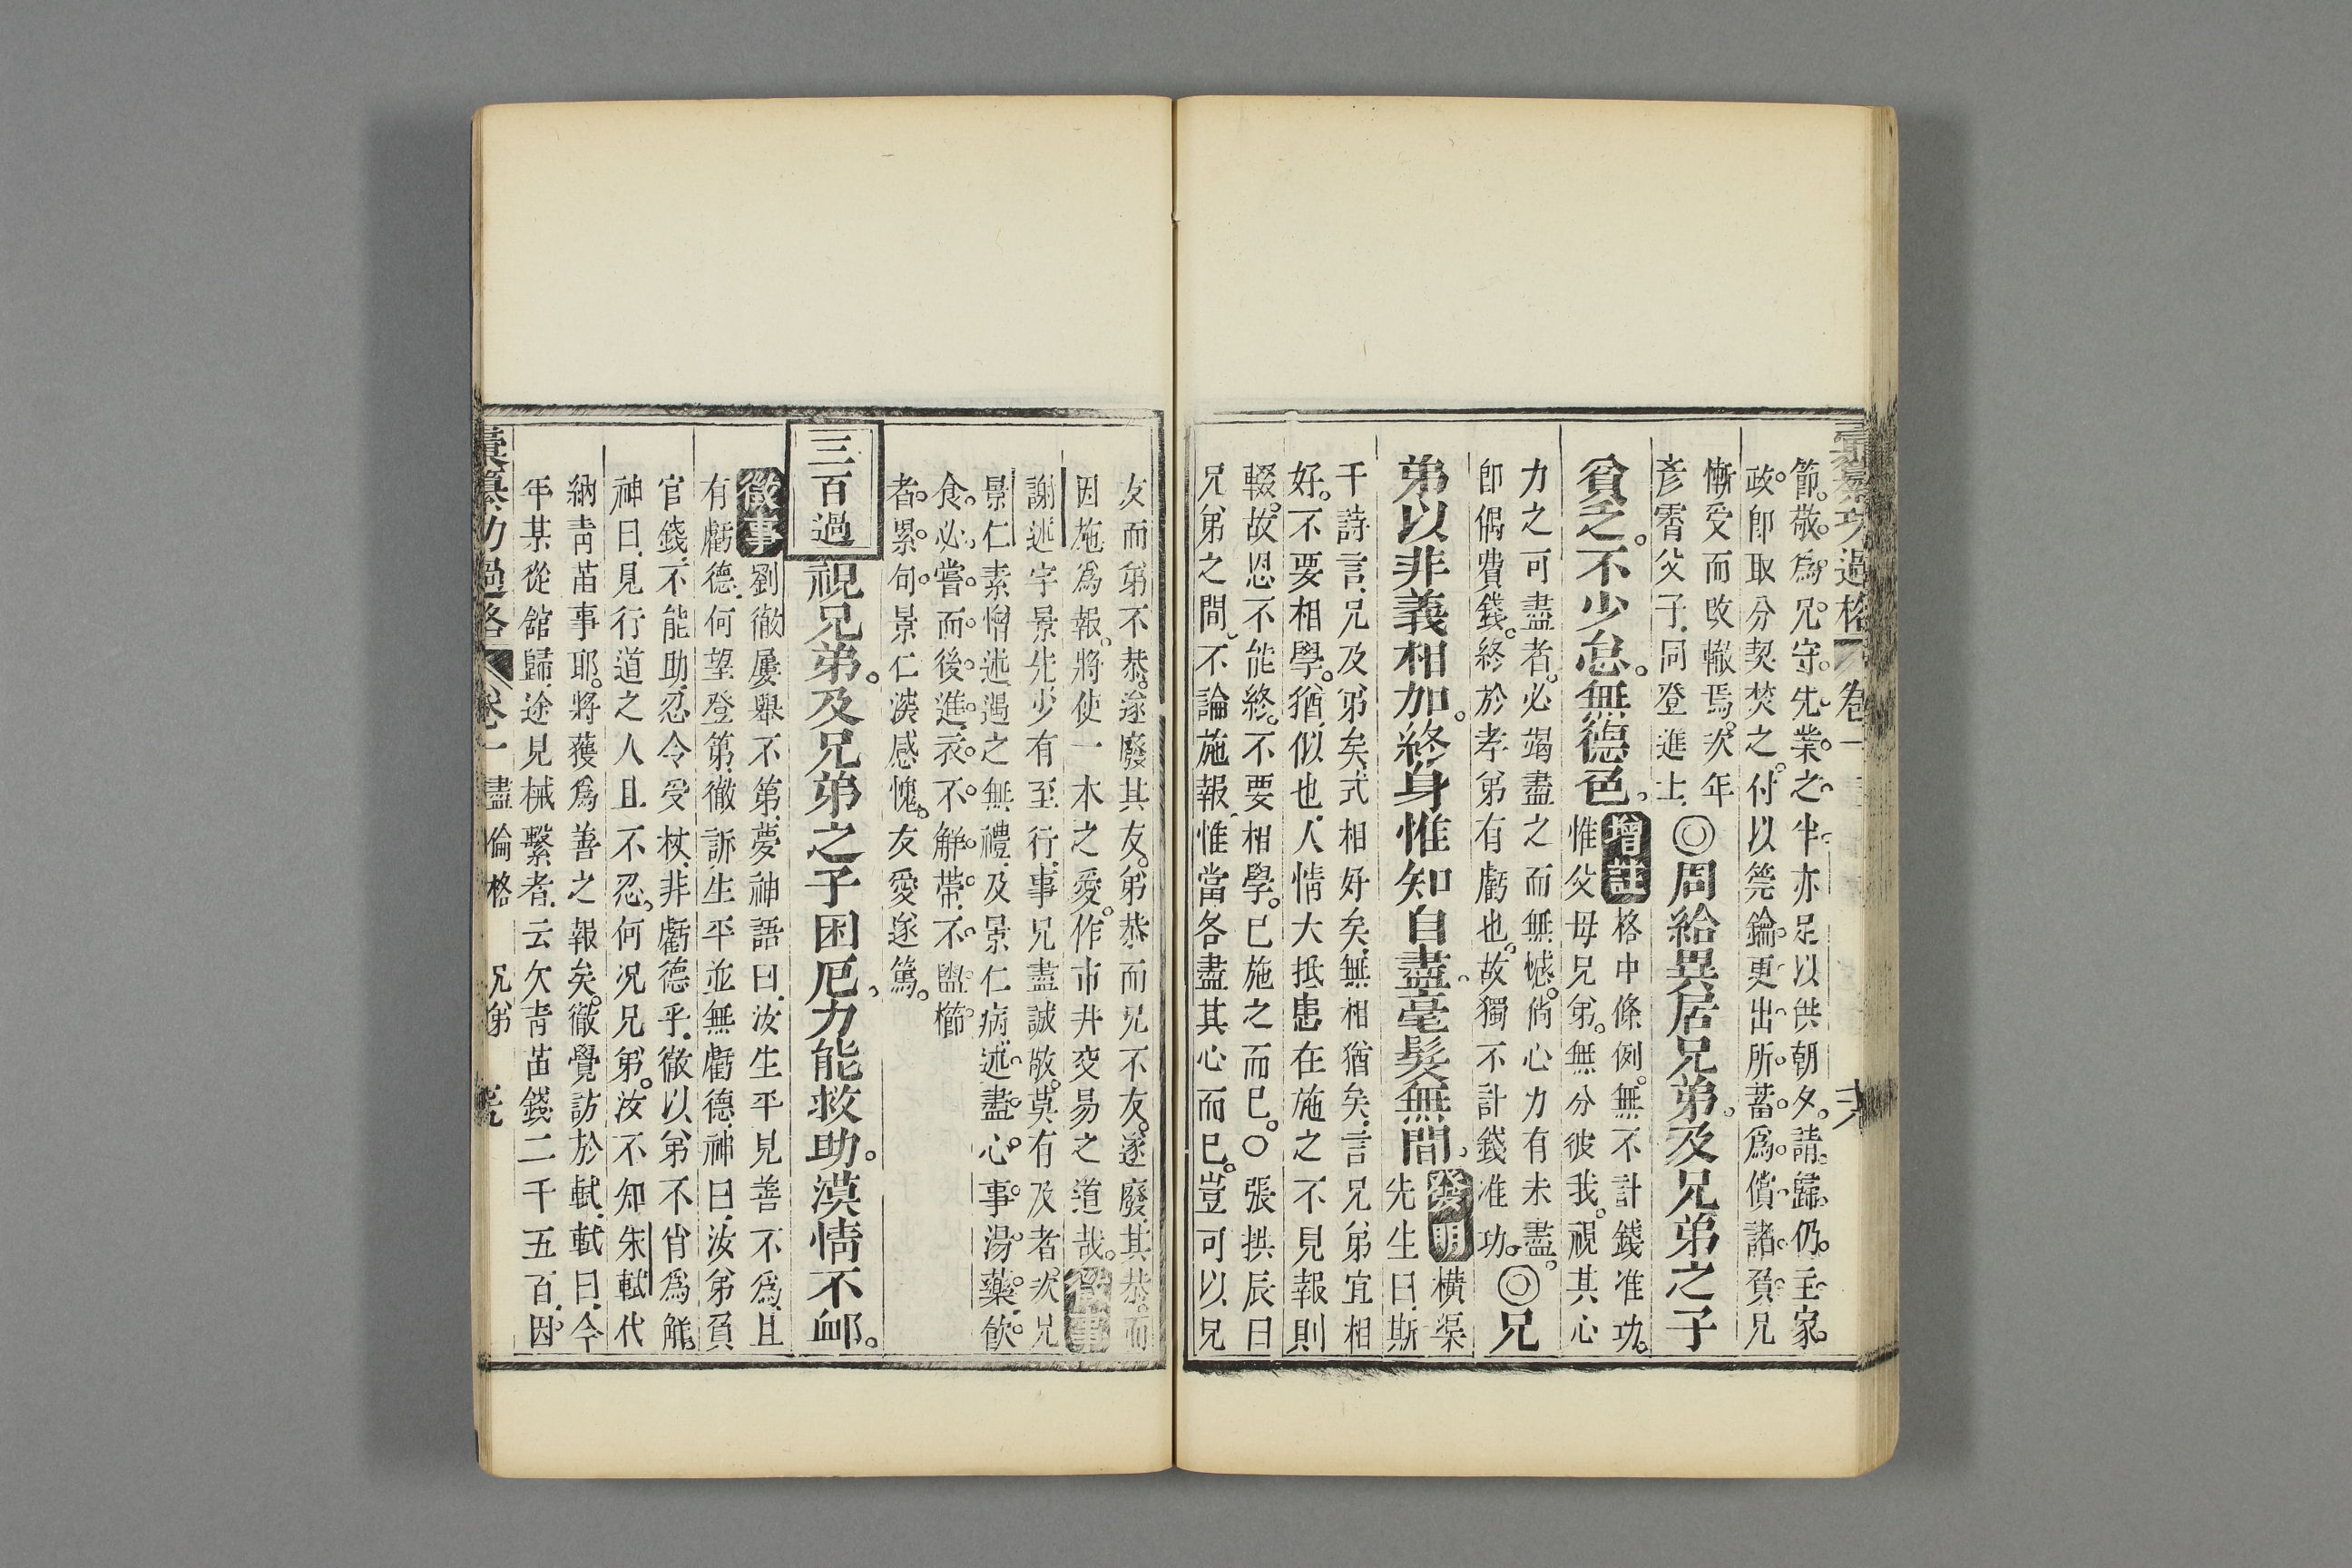 彙纂功過格 卷一
節敬爲兄守先業之半亦足以供朝夕請歸仍主家
政卽取分契焚之付以筦鑰更出所蓄爲償諸負兄
慚受而改轍焉次年
彥霄父子同登進士◎周給異居兄弟及兄弟之子
貧乏不少怠無德色
增註格中條例無不計錢准功
惟父母兄弟無分彼我視其心
力之可盡者必竭盡之而無憾倘心力有未盡
卽偶費錢終於孝弟有虧也故獨不計錢准功◎兄
弟以非義相加終身惟知自盡毫髮無間
發明橫渠
先生曰斯
干詩言兄及弟矣式相好矣無相猶矣言兄弟宜相
好不要相學猶似也人情大抵患在施之不見報則
輟故恩不能終不要相學已施之而已○張拱辰曰
兄弟之間不論施報惟當各盡其心而已豈可以兄
友而弟不恭遂廢其友弟恭而兄不友遂廢其恭而
因施爲報將使一本之愛作市井交易之道哉徵事
謝述字景先少有至行事兄盡誠敬莫有及者次兄
景仁素憎述遇之無禮及景仁病述盡心事湯藥飲
食必嘗而後進衣不解帶不盥櫛
者累旬景仁深感愧友愛遂篤
三百過 視兄弟及兄弟之子困厄力能救助漠情不卹
徵事劉徹屢舉不第夢神語曰汝生平見善不爲且
有虧德何望登第徹訴生平並無虧德神曰汝弟負
官錢不能助忍令受杖非虧德乎徹以弟不肖爲解
神曰見行道之人且不忍何况兄弟汝不知朱軾代
納青苗事耶將獲爲善之報矣徹覺訪於軾軾曰今
年某從館歸途見械繫者云欠青苗錢二千五百因
彙纂功過格 卷一 盡倫格 兄弟